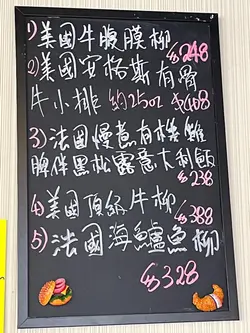 1) 美國牛腹膜柳 $248
2) 美國安格斯有骨
牛小排 約25oz $408
3) 法國慢煮有機雞
髀伴黑松露意大利飯
$238
4) 美國頂級牛柳 $388
5) 法國海鱸魚柳
$328